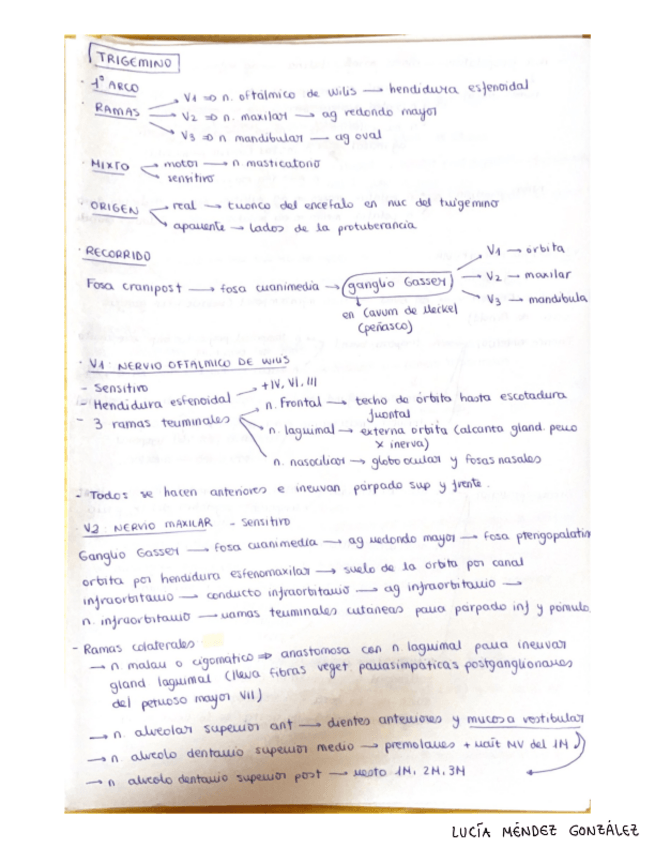 TRIGEMINO
· 1º ARCO
· RAMAS → V1 ⇒ n. oftálmico de Wilis → hendidura esfenoidal
→ V2 ⇒ n. maxilar → ag redondo mayor
→ V3 ⇒ n mandibular → ag oval
· MIXTO → motor → n masticatorio
→ sensitivo
· ORIGEN → real → tronco del encefalo en nuc del trigemino
→ aparente → lados de la protuberancia
· RECORRIDO
Fosa cranipost → fosa craneimedia → ganglio Gasser → V1 → órbita
→ V2 → maxilar
→ V3 → mandibula
en Cavum de Meckel
(peñasco)
· V1: NERVIO OFTALMICO DE WILIS
- Sensitivo
- Hendidura esfenoidal → + IV, VI, III
- 3 ramas terminales → n. Frontal → techo de órbita hasta escotadura
frontal
→ n. lagrimal → externa orbita (alcanza gland. pero
x inerva)
→ n. nasociliar → globo ocular y fosas nasales
- Todos se hacen anteriores e inervan párpado sup y frente.
· V2: NERVIO MAXILAR - Sensitivo
Ganglio Gasser → fosa cranimedia → ag redondo mayor → fosa pterigopalatin
orbita por hendidura esfenomaxilar → suelo de la orbita por canal
infraorbitario → conducto infraorbitario → ag infraorbitario →
n. infraorbitario → ramas terminales cutaneas para párpado inf y pómulo
- Ramas colaterales
→ n malar o cigomático ⇒ anastomosa con n lagrimal para inervar
gland lagrimal (lleva fibras veget. parasimpáticas postganglionares
del petroso mayor VII)
→ n. alveolar superior ant → dientes anteriores y mucosa vestibular
→ n. alveolo dentario superior medio → premolares + raíz MV del 1M
→ n alveolo dentario superior post → resto 1M, 2M, 3M
LUCÍA MÉNDEZ GONZÁLEZ